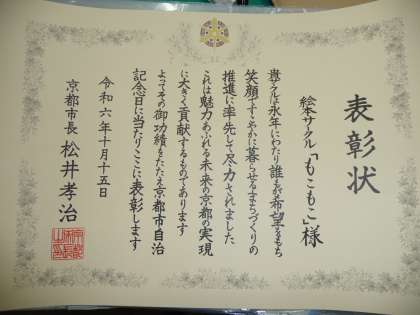 表彰状
絵本サークル「もこもこ」様
貴サークルは永年にわたり誰もが希望をもち
笑顔ですこやかに暮らせるまちづくりの
推進に率先して尽力されました
これは魅力あふれる未来の京都の実現
に大きく貢献するものであります
よってその御功績をたたえ京都市自治
記念日に当たりここに表彰します
令和六年十月十五日
京都市長 松井孝治